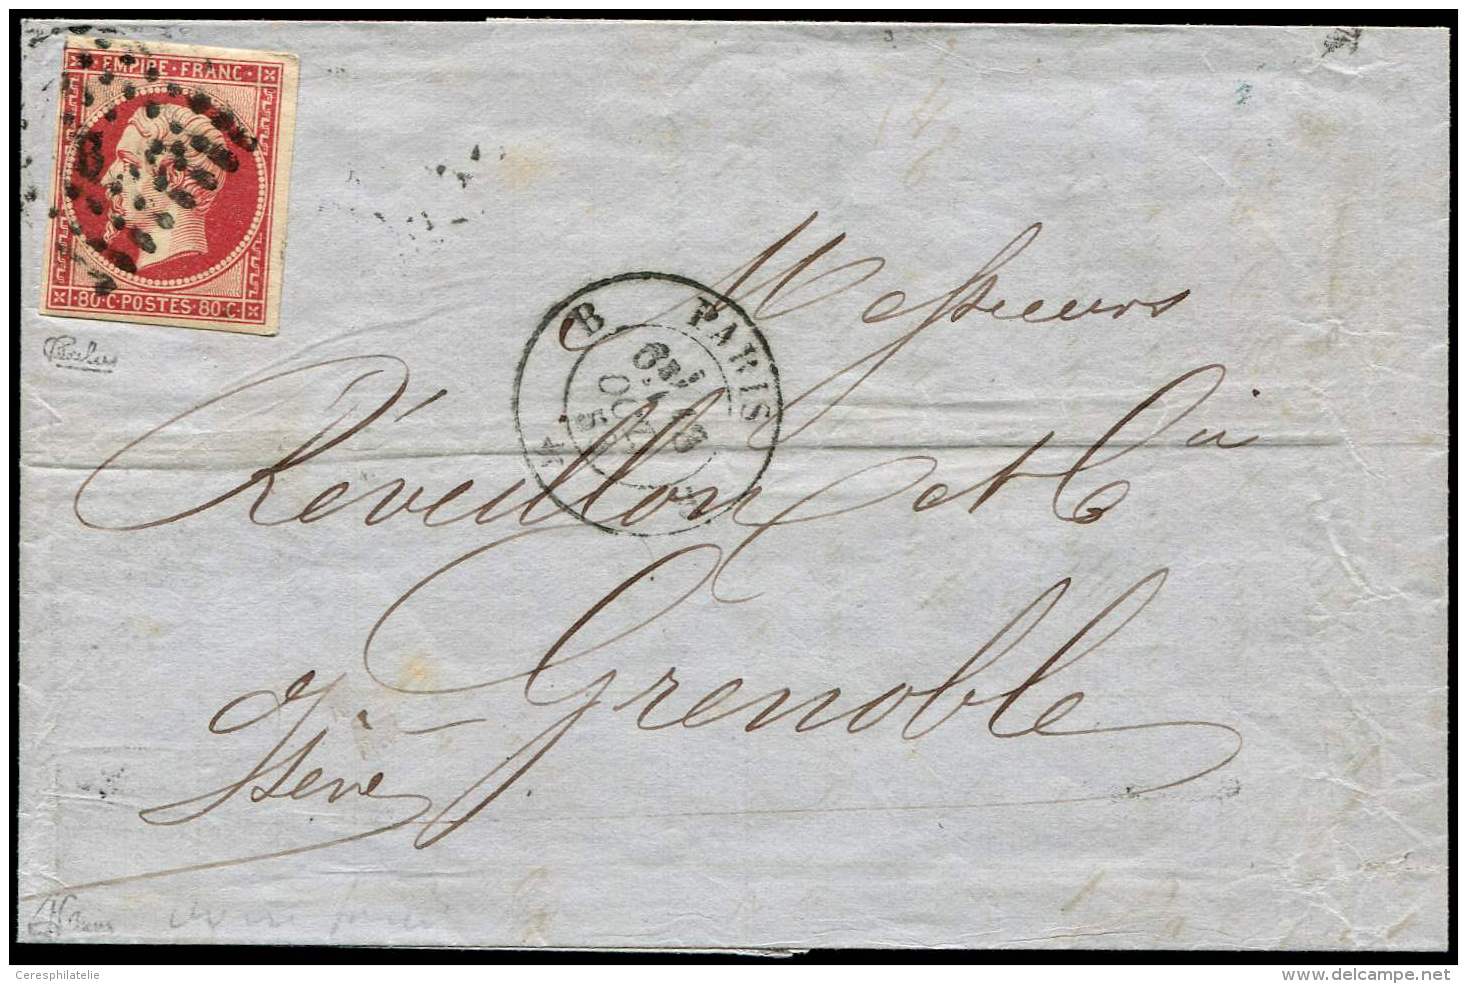 EMPIRE · FRANC ·
· 80 · C · POSTES · 80 · C ·
B PARIS
Messieurs
Réveillon et Cie
à Grenoble
Isère
Ceresphilatelie
delcampe.net